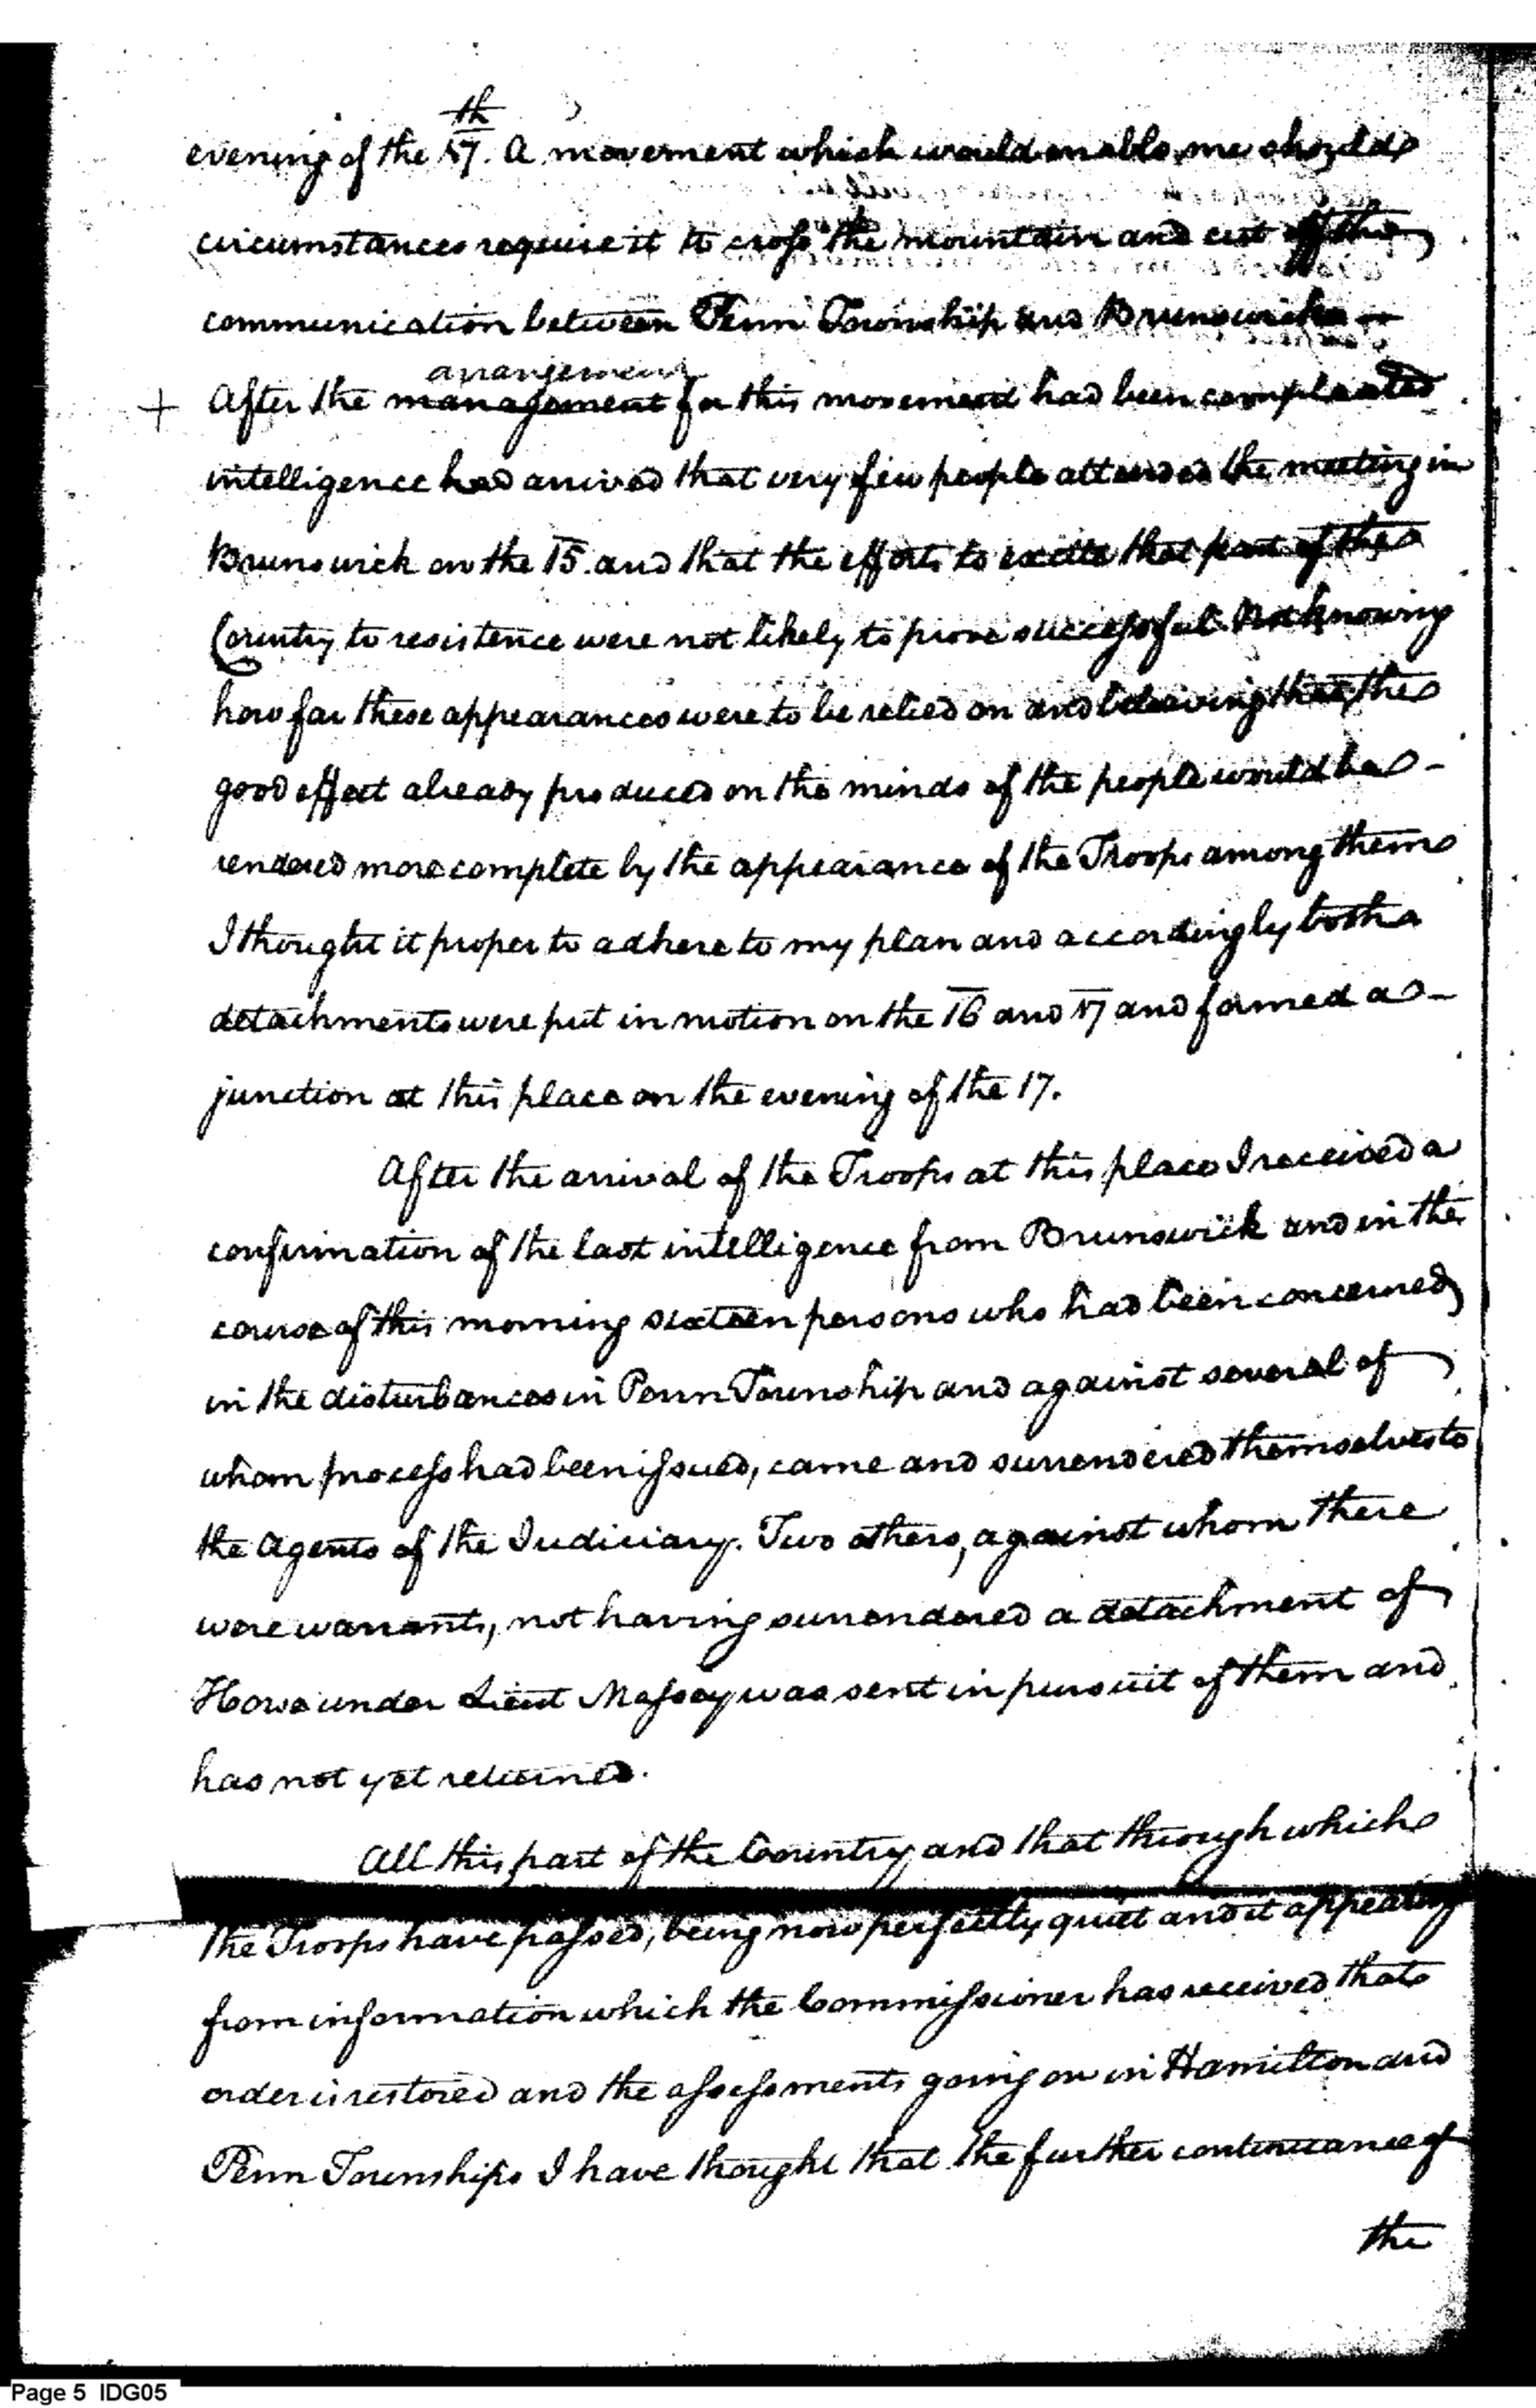 evening of the 17th. A movement which would enable me should
circumstances require it to cross the mountain and cut off the
communication between Penn Township and Brunswick —
arrangement
+ After the management for this movement had been compleated
intelligence had arrived that very few people attended the meeting in
Brunswick on the 15. and that the efforts to excite that part of the
Country to resistence were not likely to prove successful. Not knowing
how far these appearances were to be relied on and beleiving that the
good effect already produced on the minds of the people would be -
rendered more complete by the appearance of the Troops among them
I thought it proper to adhere to my plan and accordingly both
detachments were put in motion on the 16 and 17 and formed a -
junction at this place on the evening of the 17.
After the arrival of the Troops at this place I received a
confirmation of the last intelligence from Brunswick and in the
course of this morning sixteen persons who had been concerned
in the disturbances in Penn Township and against several of
whom process had been issued, came and surrendered themselves to
the Agents of the Judiciary. Two others, against whom there
were warrants, not having surrendered a detachment of
Horse under Lieut Massey was sent in pursuit of them and
has not yet returned.
All this part of the Country and that through which
the Troops have passed, being now perfectly quiet and it appearing
from information which the Commissioner has received that
order is restored and the assessments going on in Hamilton and
Penn Townships I have thought that the further continuance of
the
Page 5 IDG05